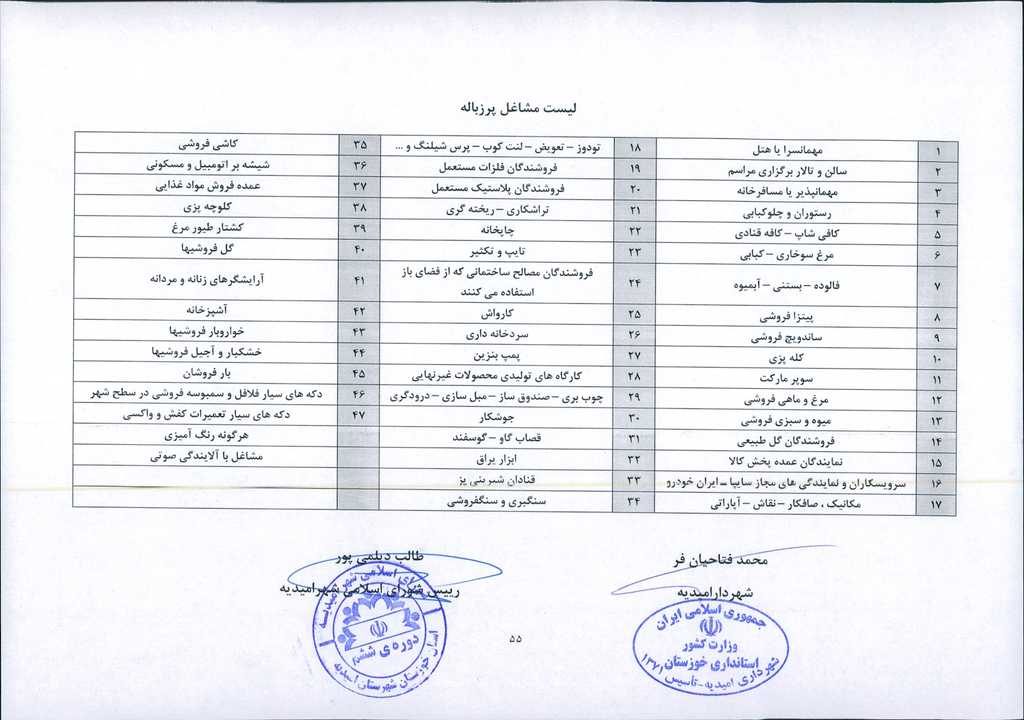 لیست مشاغل پرزباله
۱ مهمانسرا یا هتل
۲ سالن و تالار برگزاری مراسم
۳ مهمانپذیر یا مسافرخانه
۴ رستوران و چلوکبابی
۵ کافی شاپ – کافه قنادی
۶ مرغ سوخاری – کبابی
۷ فالوده – بستنی – آبمیوه
۸ پیتزا فروشی
۹ ساندویچ فروشی
۱۰ کله پزی
۱۱ سوپر مارکت
۱۲ مرغ و ماهی فروشی
۱۳ میوه و سبزی فروشی
۱۴ فروشندگان گل طبیعی
۱۵ نمایندگان عمده پخش کالا
۱۶ سرویسکاران و نمایندگی های مجاز سایپا – ایران خودرو
۱۷ مکانیک ، صافکار – نقاش – آپاراتی
۱۸ تودوز – تعویض – لنت کوب – پرس شیلنگ و ...
۱۹ فروشندگان فلزات مستعمل
۲۰ فروشندگان پلاستیک مستعمل
۲۱ تراشکاری – ریخته گری
۲۲ چاپخانه
۲۳ تایپ و تکثیر
۲۴ فروشندگان مصالح ساختمانی که از فضای باز
استفاده می کنند
۲۵ کارواش
۲۶ سردخانه داری
۲۷ پمپ بنزین
۲۸ کارگاه های تولیدی محصولات غیرنهایی
۲۹ چوب بری – صندوق ساز – مبل سازی – درودگری
۳۰ جوشکار
۳۱ قصاب گاو – گوسفند
۳۲ ابزار یراق
۳۳ قنادان شیرینی پز
۳۴ سنگبری و سنگفروشی
۳۵ کاشی فروشی
۳۶ شیشه بر اتومبیل و مسکونی
۳۷ عمده فروش مواد غذایی
۳۸ کلوچه پزی
۳۹ کشتار طیور مرغ
۴۰ گل فروشیها
۴۱ آرایشگرهای زنانه و مردانه
۴۲ آشپزخانه
۴۳ خواروبار فروشیها
۴۴ خشکبار و آجیل فروشیها
۴۵ بار فروشان
۴۶ دکه های سیار فلافل و سمبوسه فروشی در سطح شهر
۴۷ دکه های سیار تعمیرات کفش و واکسی
هرگونه رنگ آمیزی
مشاغل با آلایندگی صوتی
محمد فتاحیان فر
شهردارامیدیه
طالب دیلمی پور
رییس شورای اسلامی شهرامیدیه
جمهوری اسلامی ایران
وزارت کشور
استانداری خوزستان
شهرداری امیدیه - تاسیس ۱۳۷۱
شورای اسلامی شهر امیدیه
دوره ی ششم
استان خوزستان شهرستان امیدیه
۵۵